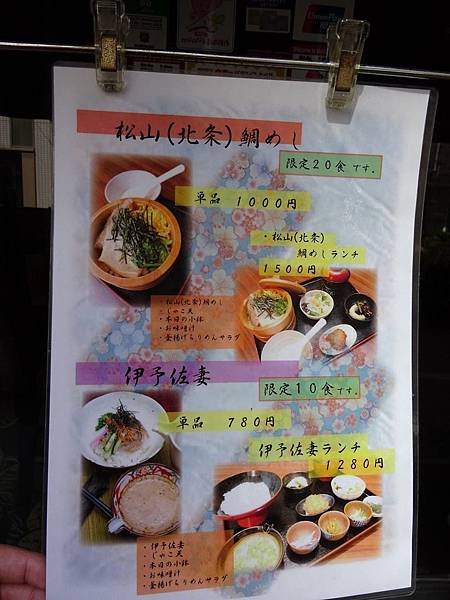 松山(北条)鯛めし
限定20食です.
単品 1000円
・松山(北条)
鯛めしランチ
1500円
・松山(北条)鯛めし
・じゃこ天
・本日の小鉢
・お味噌汁
・釜揚げちりめんサラダ
伊予佐妻
限定10食です.
単品 780円
伊予佐妻ランチ
1280円
・伊予佐妻
・じゃこ天
・本日の小鉢
・お味噌汁
・釜揚げちりめんサラダ